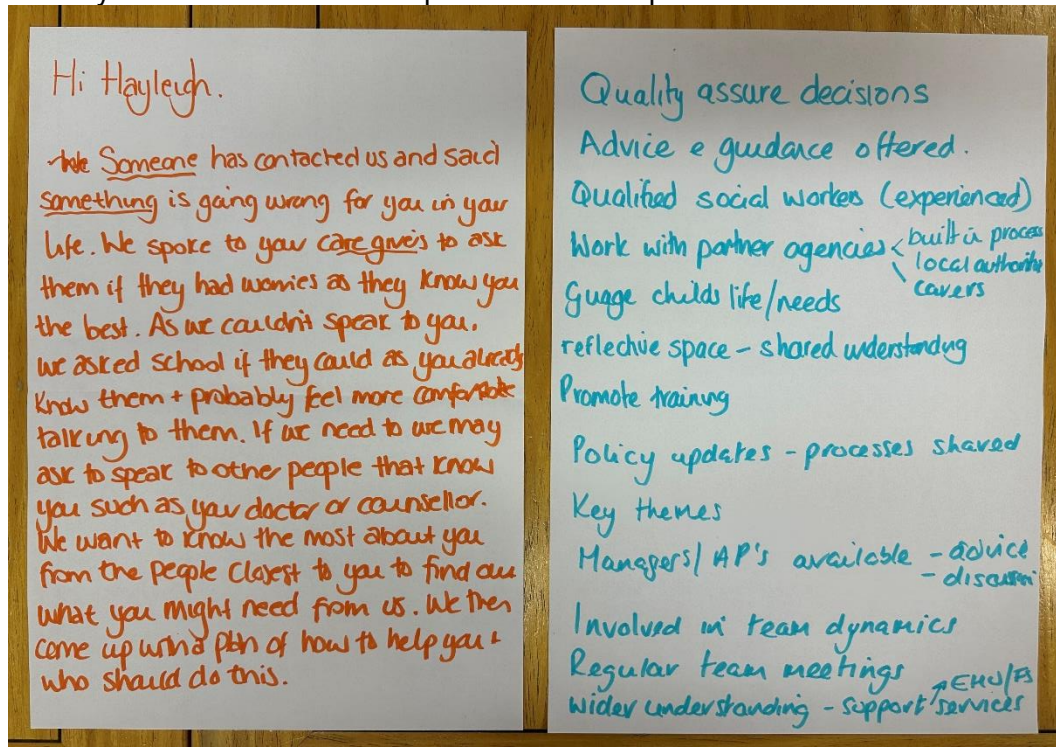 Hi Hayleigh.
Someone has contacted us and said
something is going wrong for you in your
life. We spoke to your caregivers to ask
them if they had worries as they know you
the best. As we couldn't speak to you,
we asked school if they could as you already
know them + probably feel more comfortable
talking to them. If we need to we may
ask to speak to other people that know
you such as your doctor or counsellor.
We want to know the most about you
from the people closest to you to find out
what you might need from us. We then
come up with a plan of how to help you +
who should do this.
Quality assure decisions
Advice & guidance offered.
Qualified social workers (experienced)
Work with partner agencies < built in process
local authority
carers
Guage childs life/needs
reflective space - shared understanding
Promote training
Policy updates - processes shared
Key themes
Managers/AP's available - advice
- discussion
Involved in team dynamics
Regular team meetings
wider understanding - support services